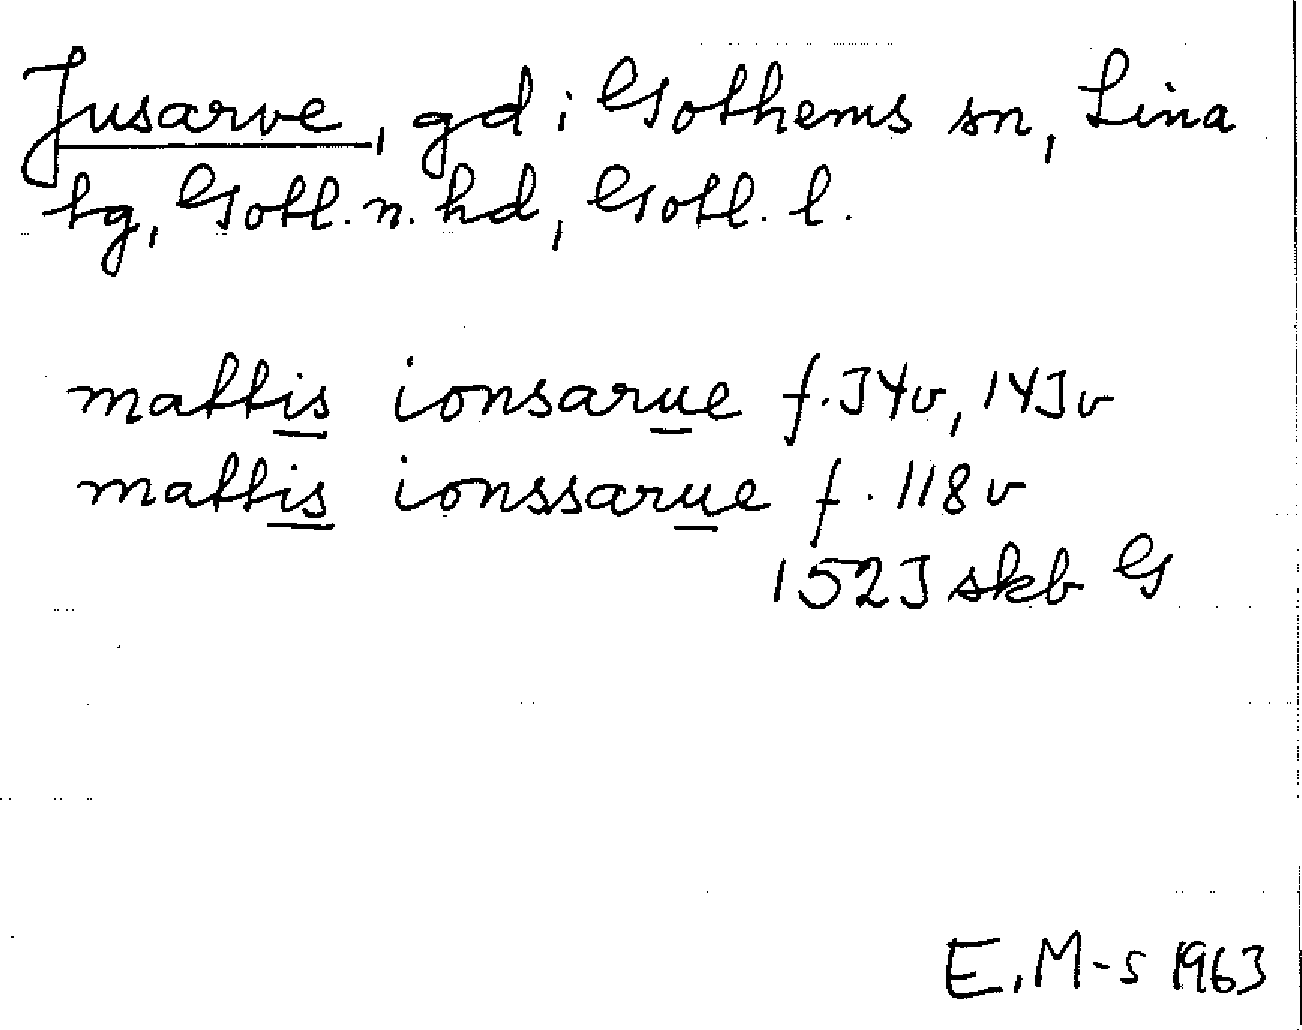 Jusarve, gd i Gothems sn, Lina
tg, Gotl. n. hd, Gotl. l.
mattis ionsarue f. 34v, 143v
mattis ionssarue f. 118v
1523 skb G
E.M-s 1963